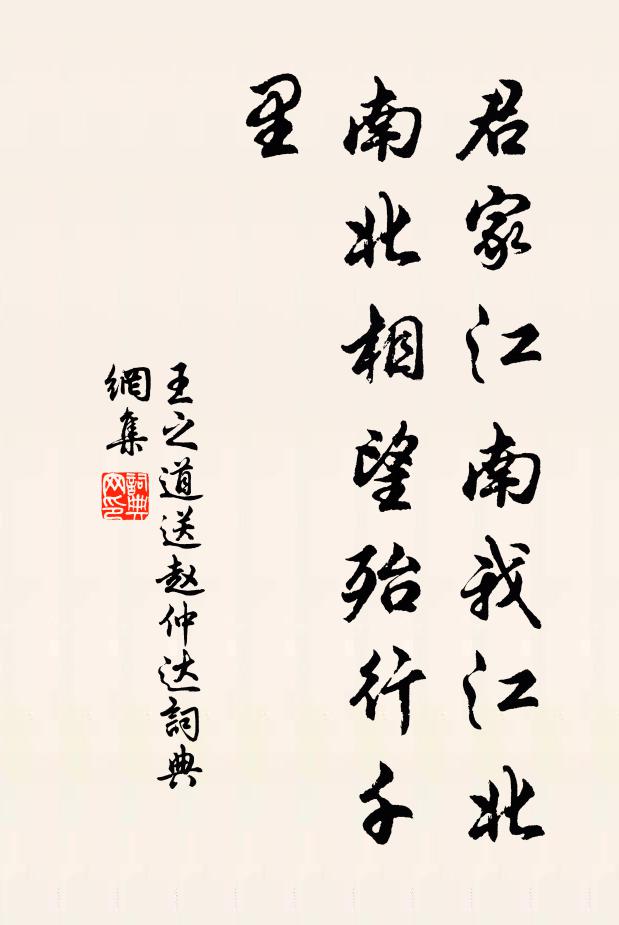 君家江南我江北
南北相望殆行千
里
王之道送赵仲达詞典
網集
詞典
网印